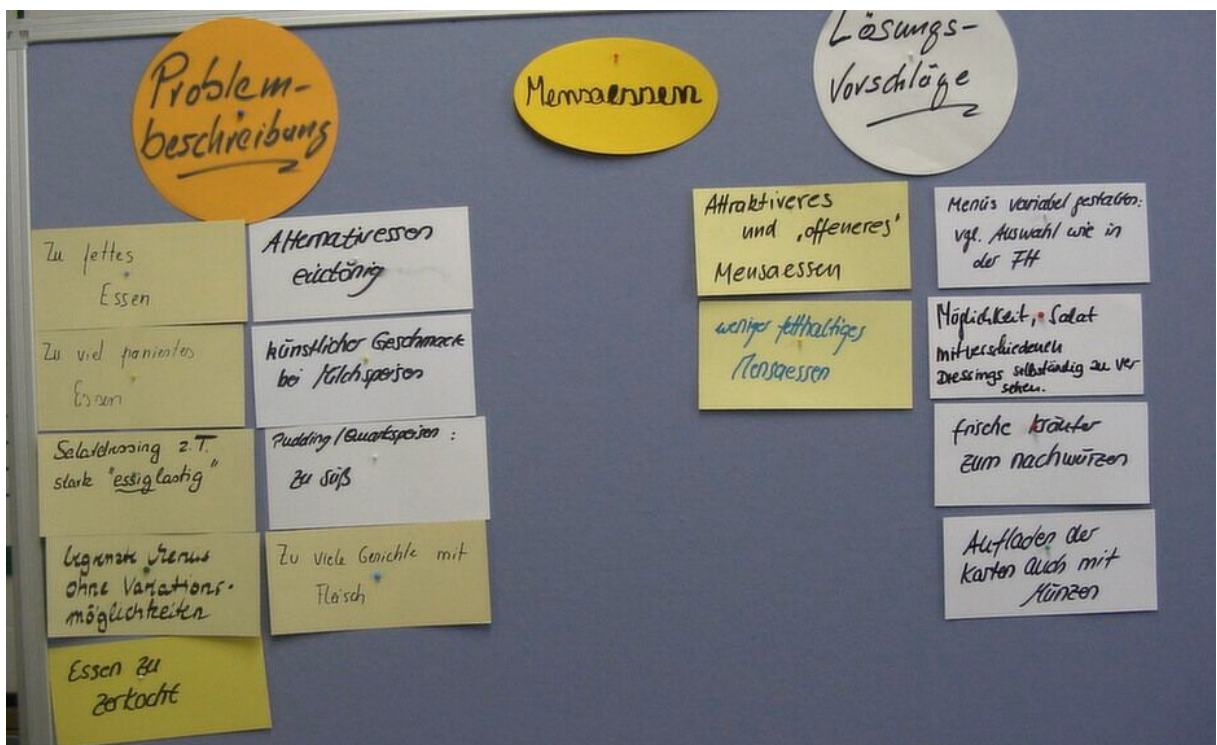 Problem-
beschreibung
Zu fettes
Essen
Zu viel paniertes
Essen
Salatdressing z.T.
stark "essiglastig"
begrenzte Menüs
ohne Variations-
möglichkeiten
Essen zu
zerkocht
Alternativessen
eintönig
künstlicher Geschmack
bei Milchspeisen
Pudding/Quarkspeisen:
zu süß
Zu viele Gerichte mit
Fleisch
Mensaessen
Lösungs-
Vorschläge
Attraktiveres
und „offeneres"
Mensaessen
weniger fetthaltiges
Mensaessen
Menüs variabel gestalten:
vgl. Auswahl wie in
der FH
Möglichkeit, Salat
mit verschiedenen
Dressings selbständig zu ver
sehen.
frische Kräuter
zum nachwürzen
Aufladen der
Karten auch mit
Münzen